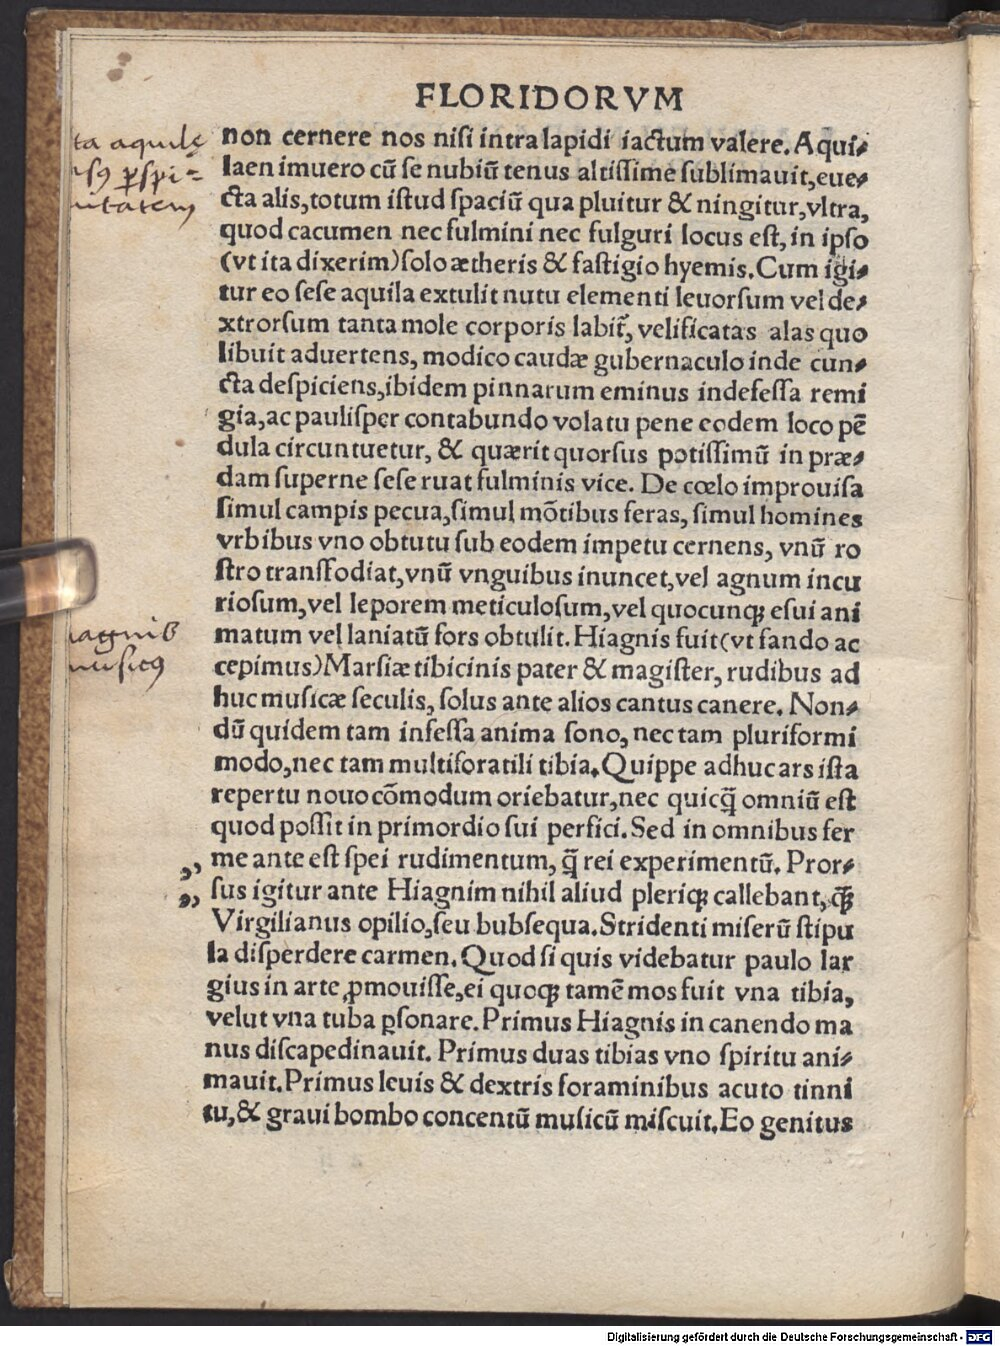 FLORIDORVM
ta aquilę
pspi=
uitatem
non cernere nos niſi intra lapidi iactum valere. Aqui⸗
laen imuero cū ſe nubiū tenus altiſſime ſublimauit,eue⸗
cta alis,totum iſtud ſpaciū qua pluitur & ningitur,vltra,
quod cacumen nec fulmini nec fulguri locus eſt, in ipſo
(vt ita dixerim)ſolo ætheris & faſtigio hyemis.Cum igi⸗
tur eo ſeſe aquila extulit nutu elementi leuorſum vel de⸗
xtrorſum tanta mole corporis labit᷑, velificatas alas quo
libuit aduertens, modico caudæ gubernaculo inde cun⸗
cta deſpiciens,ibidem pinnarum eminus indefeſſa remi
gia,ac pauliſper contabundo volatu pene eodem loco pē
dula circuntuetur, & quærit quorſus potiſſimū in præ⸗
dam ſuperne ſeſe ruat fulminis vice. De cœlo improuiſa
ſimul campis pecua,ſimul mōtibus feras, ſimul homines
vrbibus vno obtutu ſub eodem impetu cernens, vnū ro
ſtro transfodiat,vnū vnguibus inuncet,vel agnum incu
rioſum,vel leporem meticuloſum,vel quocunqꝫ eſui ani
matum vel laniatū fors obtulit. Hiagnis fuit(vt fando ac
cepimus)Marſiæ tibicinis pater & magiſter, rudibus ad
huc muſicæ ſeculis, ſolus ante alios cantus canere. Non⸗
dū quidem tam infeſſa anima ſono, nec tam pluriformi
modo,nec tam multiforatili tibia.Quippe adhuc ars iſta
repertu nouo cōmodum oriebatur,nec quicq̄ omniū eſt
quod poſſit in primordio ſui perfici. Sed in omnibus fer
,, me ante eſt ſpei rudimentum, q̄ rei experimentū. Pror⸗
,, ſus igitur ante Hiagnim nihil aliud pleriqꝫ callebant,q̄ꝫ
Virgilianus opilio,ſeu bubſequa.Stridenti miſerū ſtipu
la diſperdere carmen. Quod ſi quis videbatur paulo lar
gius in arte ꝓmouiſſe,ei quoqꝫ tamē mos fuit vna tibia,
velut vna tuba ꝑſonare. Primus Hiagnis in canendo ma
nus diſcapedinauit. Primus duas tibias vno ſpiritu ani⸗
mauit.Primus leuis & dextris foraminibus acuto tinni
tu,& graui bombo concentū muſicū miſcuit.Eo genitus
Digitalisierung gefördert durch die Deutsche Forschungsgemeinschaft - DFG